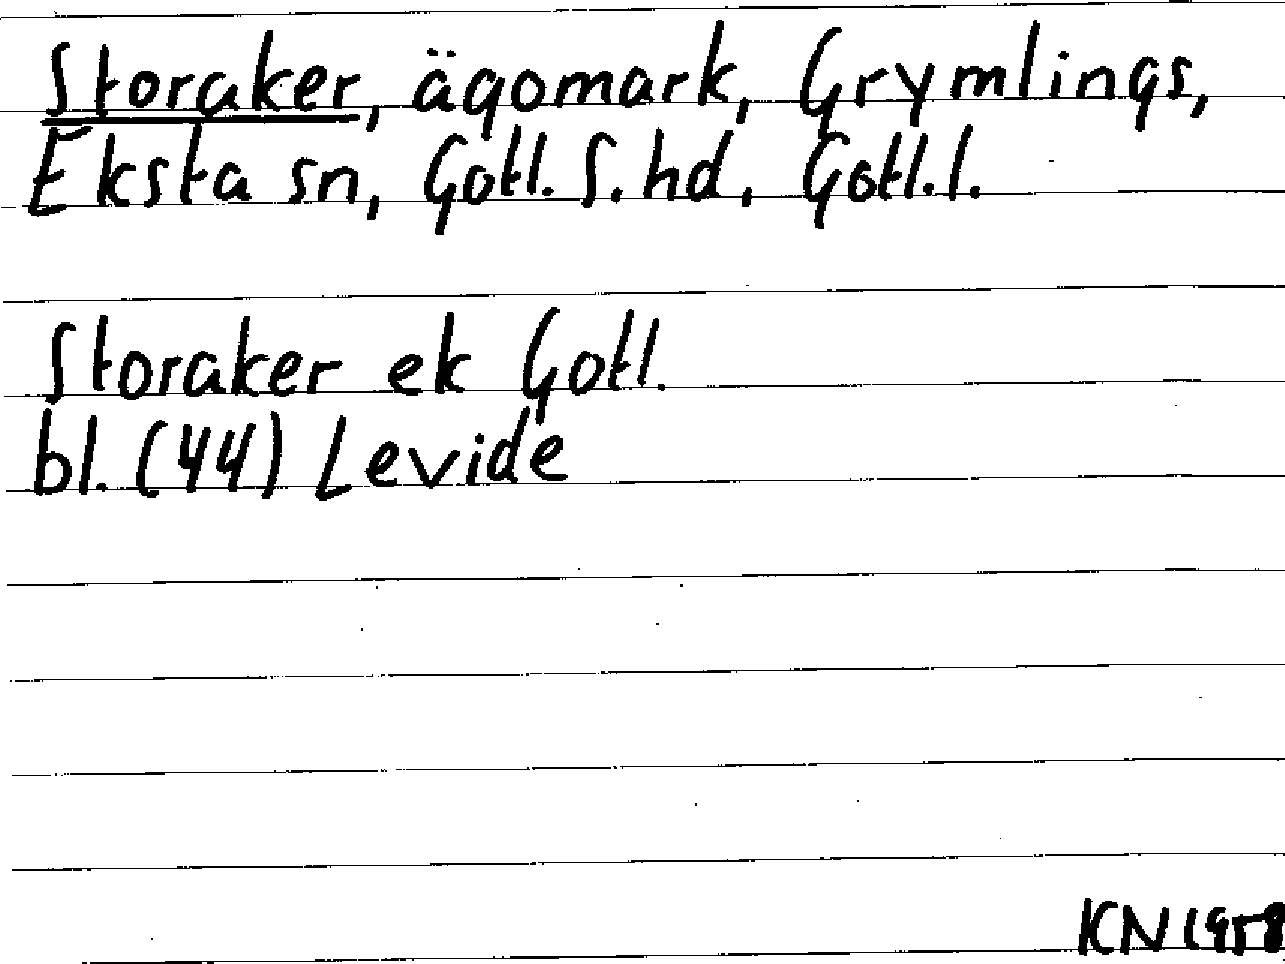 Storaker, ägomark, Grymlings,
Eksta sn, Gotl. S. hd, Gotl. l.
Storaker ek Gotl.
bl. (44) Levide
KN 1958